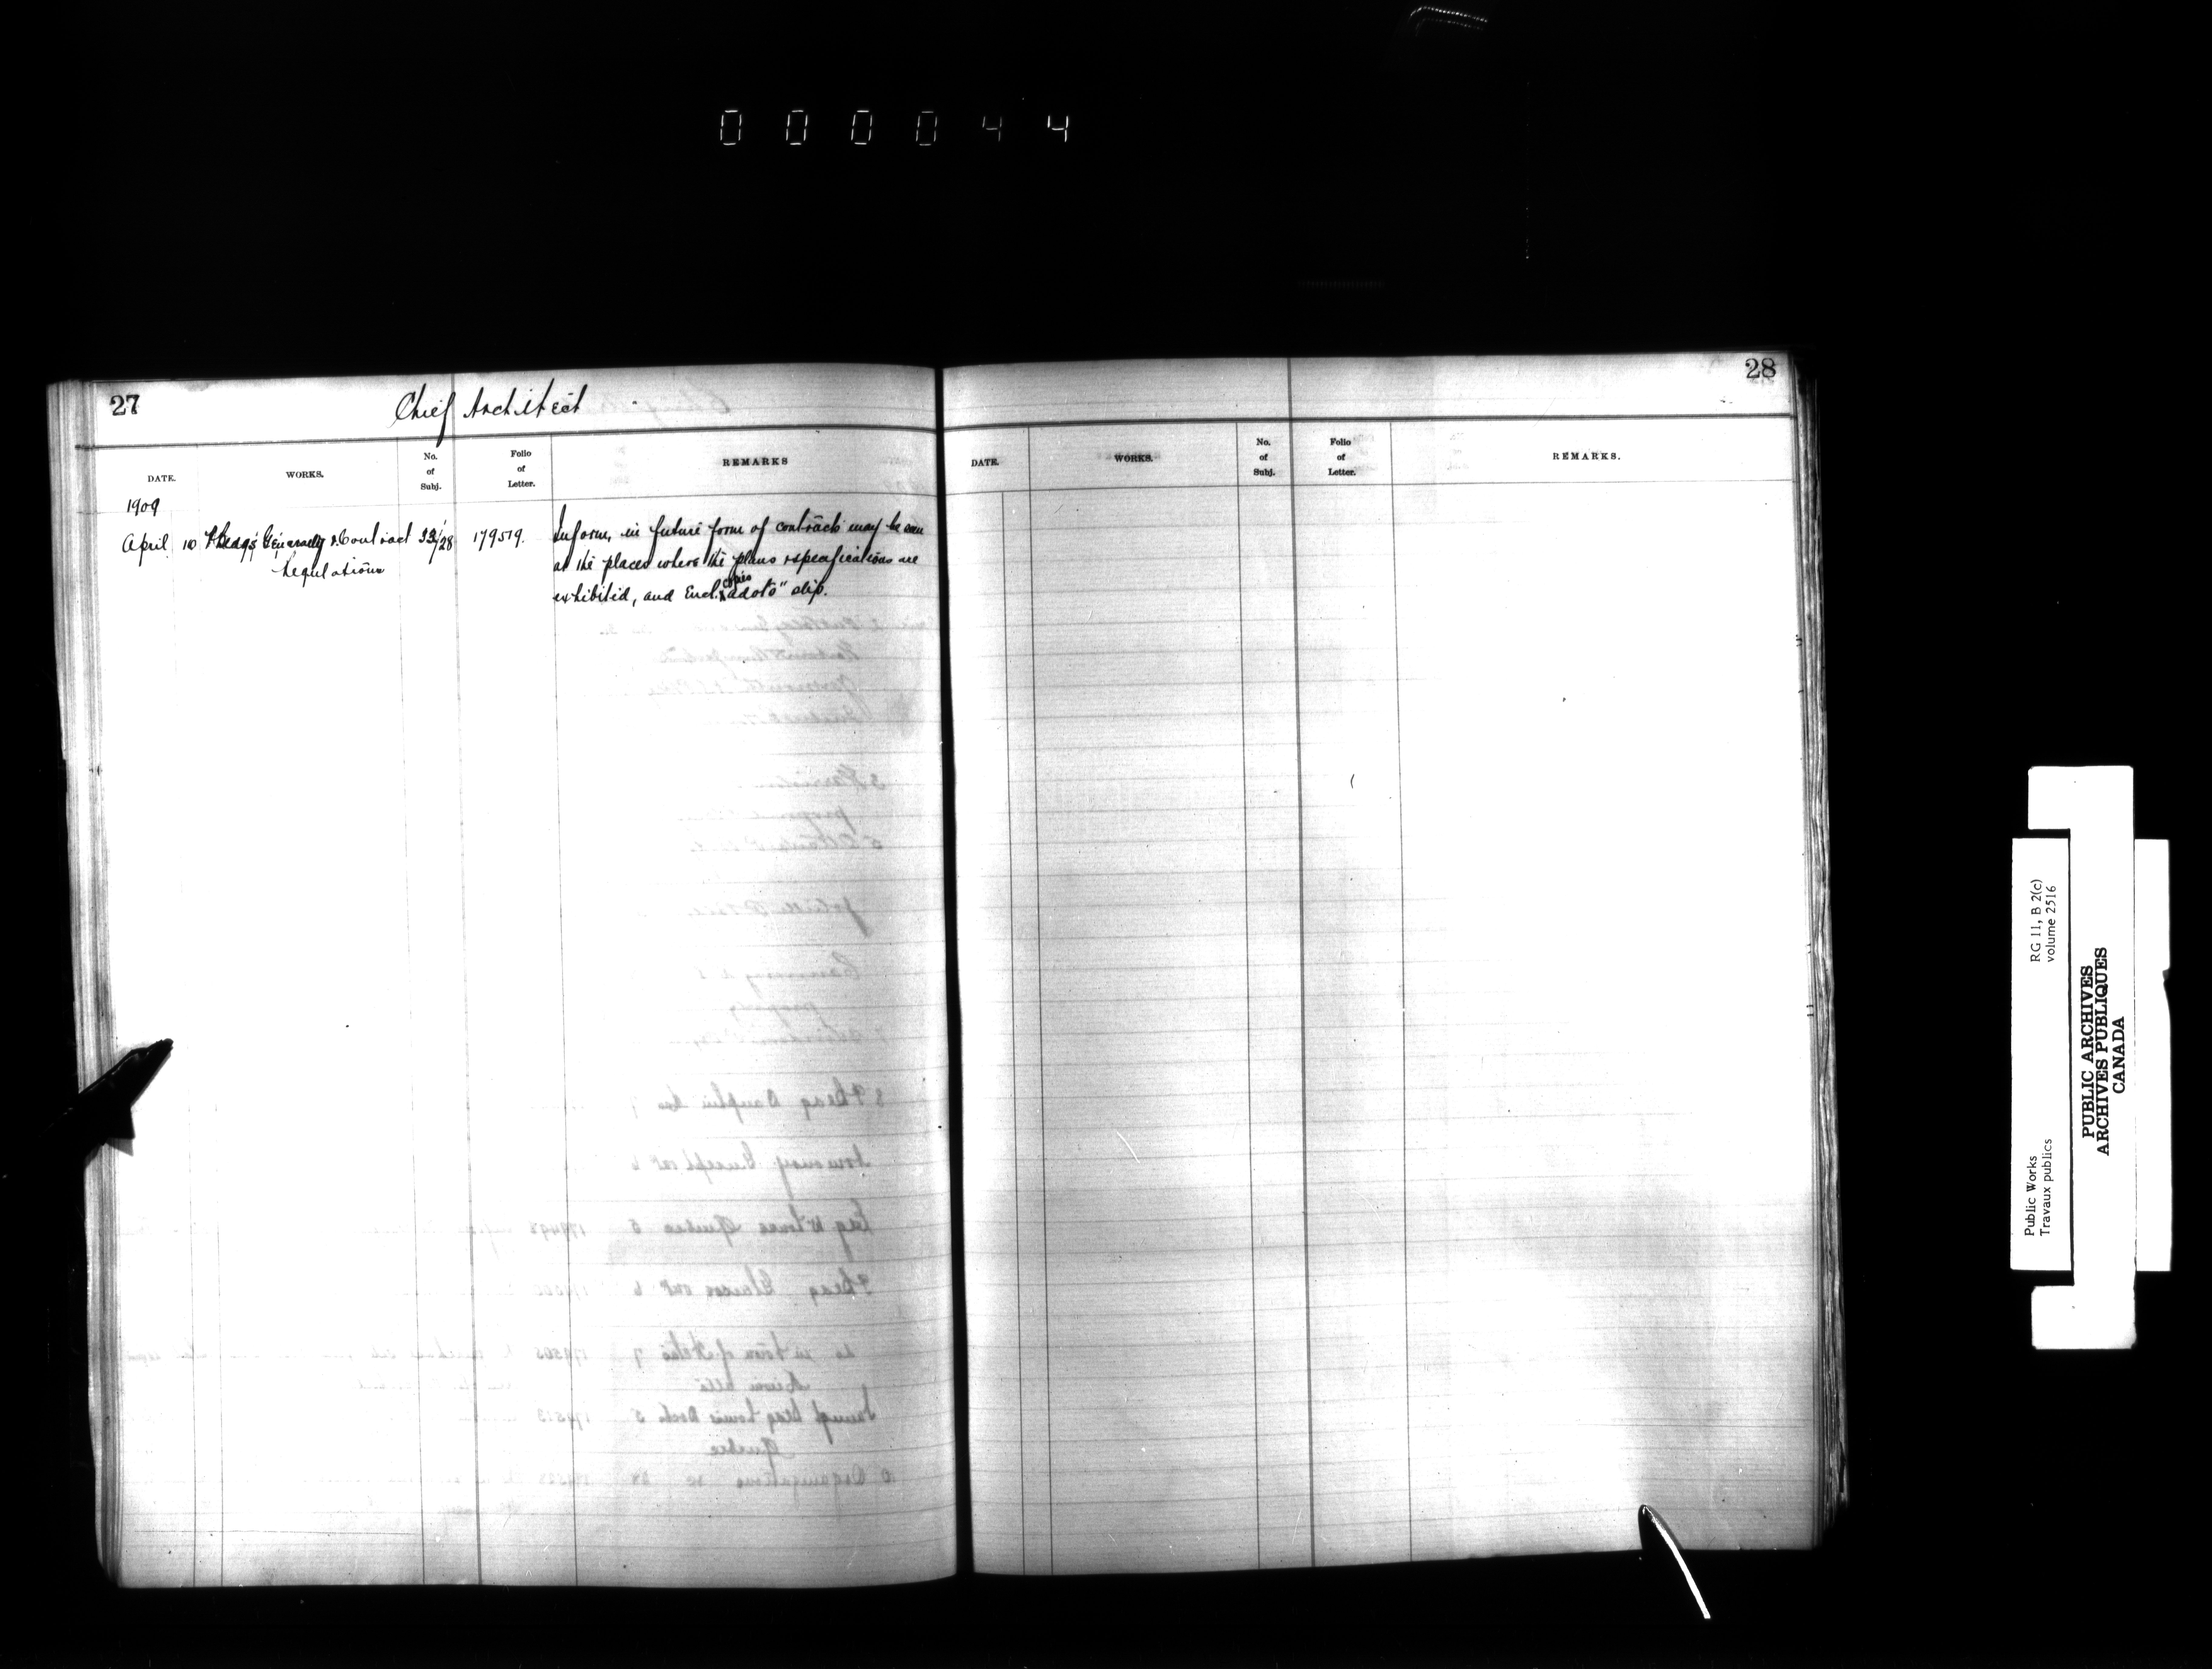 000044
27
Chief Architect
DATE.
WORKS.
No.
of
Subj.
Folio
of
Letter.
REMARKS
1909
April 10 Generally & Contract 33/28 179519. Inform, in future form of contracts may be seen
Regulations at the places where the plans & specifications are
copies
exhibited, and Encl. slip.
28
DATE.
WORKS.
No.
of
Subj.
Folio
of
Letter.
REMARKS.
Public Works
Travaux publics
RG 11, B 2(c)
volume 2516
PUBLIC ARCHIVES
ARCHIVES PUBLIQUES
CANADA